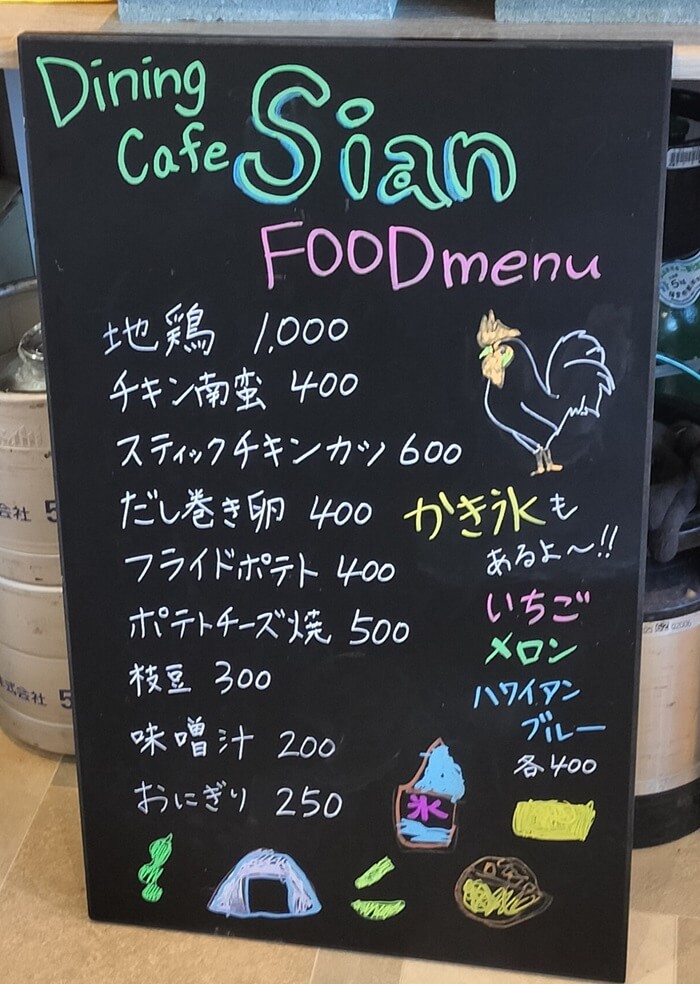 Dining
Cafe Sian
FOOD menu
地鶏 1,000
チキン南蛮 400
スティックチキンカツ 600
だし巻き卵 400
フライドポテト 400
ポテトチーズ焼 500
枝豆 300
味噌汁 200
おにぎり 250
かき氷も
あるよ〜!!
いちご
メロン
ハワイアン
ブルー
各400
氷
会社 5
式会社 5